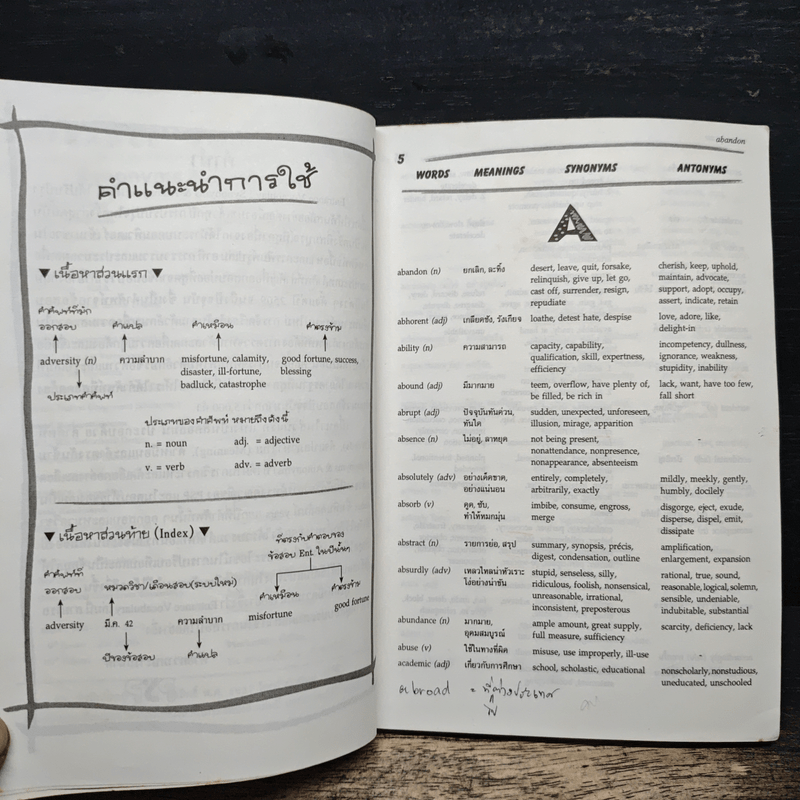 คำแนะนำการใช้
▼ เนื้อหาส่วนแรก ▼
คำศัพท์ที่มัก
ออกสอบ คำแปล คำเหมือน คำตรงข้าม
adversity (n) ความลำบาก misfortune, calamity, good fortune, success,
disaster, ill-fortune, blessing
badluck, catastrophe
ประเภทคำศัพท์
ประเภทของคำศัพท์ หมายถึงดังนี้
n. = noun adj. = adjective
v. = verb adv. = adverb
▼ เนื้อหาส่วนท้าย (Index) ▼
ที่ตรงกับคำตอบของ
ข้อสอบ Ent ในปีนั้นๆ
คำศัพท์ที่
ออกสอบ หมวดวิชา/เดือนสอบ(ระบบใหม่)
คำเหมือน คำตรงข้าม
misfortune good fortune
adversity มี.ค. 42 ความลำบาก
ปีของข้อสอบ คำแปล
abandon
5
WORDS MEANINGS SYNONYMS ANTONYMS
A
abandon (n) ยกเลิก, ละทิ้ง desert, leave, quit, forsake, cherish, keep, uphold,
relinquish, give up, let go, maintain, advocate,
cast off, surrender, resign, support, adopt, occupy,
repudiate assert, indicate, retain
abhorent (adj) เกลียดชัง, รังเกียจ loathe, detest hate, despise love, adore, like,
delight-in
ability (n) ความสามารถ capacity, capability, incompetency, dullness,
qualification, skill, expertness, ignorance, weakness,
efficiency stupidity, inability
abound (adj) มีมากมาย teem, overflow, have plenty of, lack, want, have too few,
be filled, be rich in fall short
abrupt (adj) ปัจจุบันทันด่วน, sudden, unexpected, unforeseen,
ทันใด illusion, mirage, apparition
absence (n) ไม่อยู่, ลาหยุด not being present,
nonattendance, nonpresence,
nonappearance, absenteeism
absolutely (adv) อย่างเด็ดขาด, entirely, completely, mildly, meekly, gently,
อย่างแน่นอน arbitrarily, exactly humbly, docilely
absorb (v) ดูด, ซับ, imbibe, consume, engross, disgorge, eject, exude,
ทำให้หมกมุ่น merge disperse, dispel, emit,
dissipate
abstract (n) รายการย่อ, สรุป summary, synopsis, précis, amplification,
digest, condensation, outline enlargement, expansion
absurdly (adv) เหลวไหลน่าหัวเราะ stupid, senseless, silly, rational, true, sound,
โง่อย่างน่าขัน ridiculous, foolish, nonsensical, reasonable, logical, solemn,
unreasonable, irrational, sensible, undeniable,
inconsistent, preposterous indubitable, substantial
abundance (n) มากมาย, ample amount, great supply, scarcity, deficiency, lack
อุดมสมบูรณ์ full measure, sufficiency
abuse (v) ใช้ในทางที่ผิด misuse, use improperly, ill-use
academic (adj) เกี่ยวกับการศึกษา school, scholastic, educational nonscholarly, nonstudious,
uneducated, unschooled
abroad = ที่ต่างประเทศ